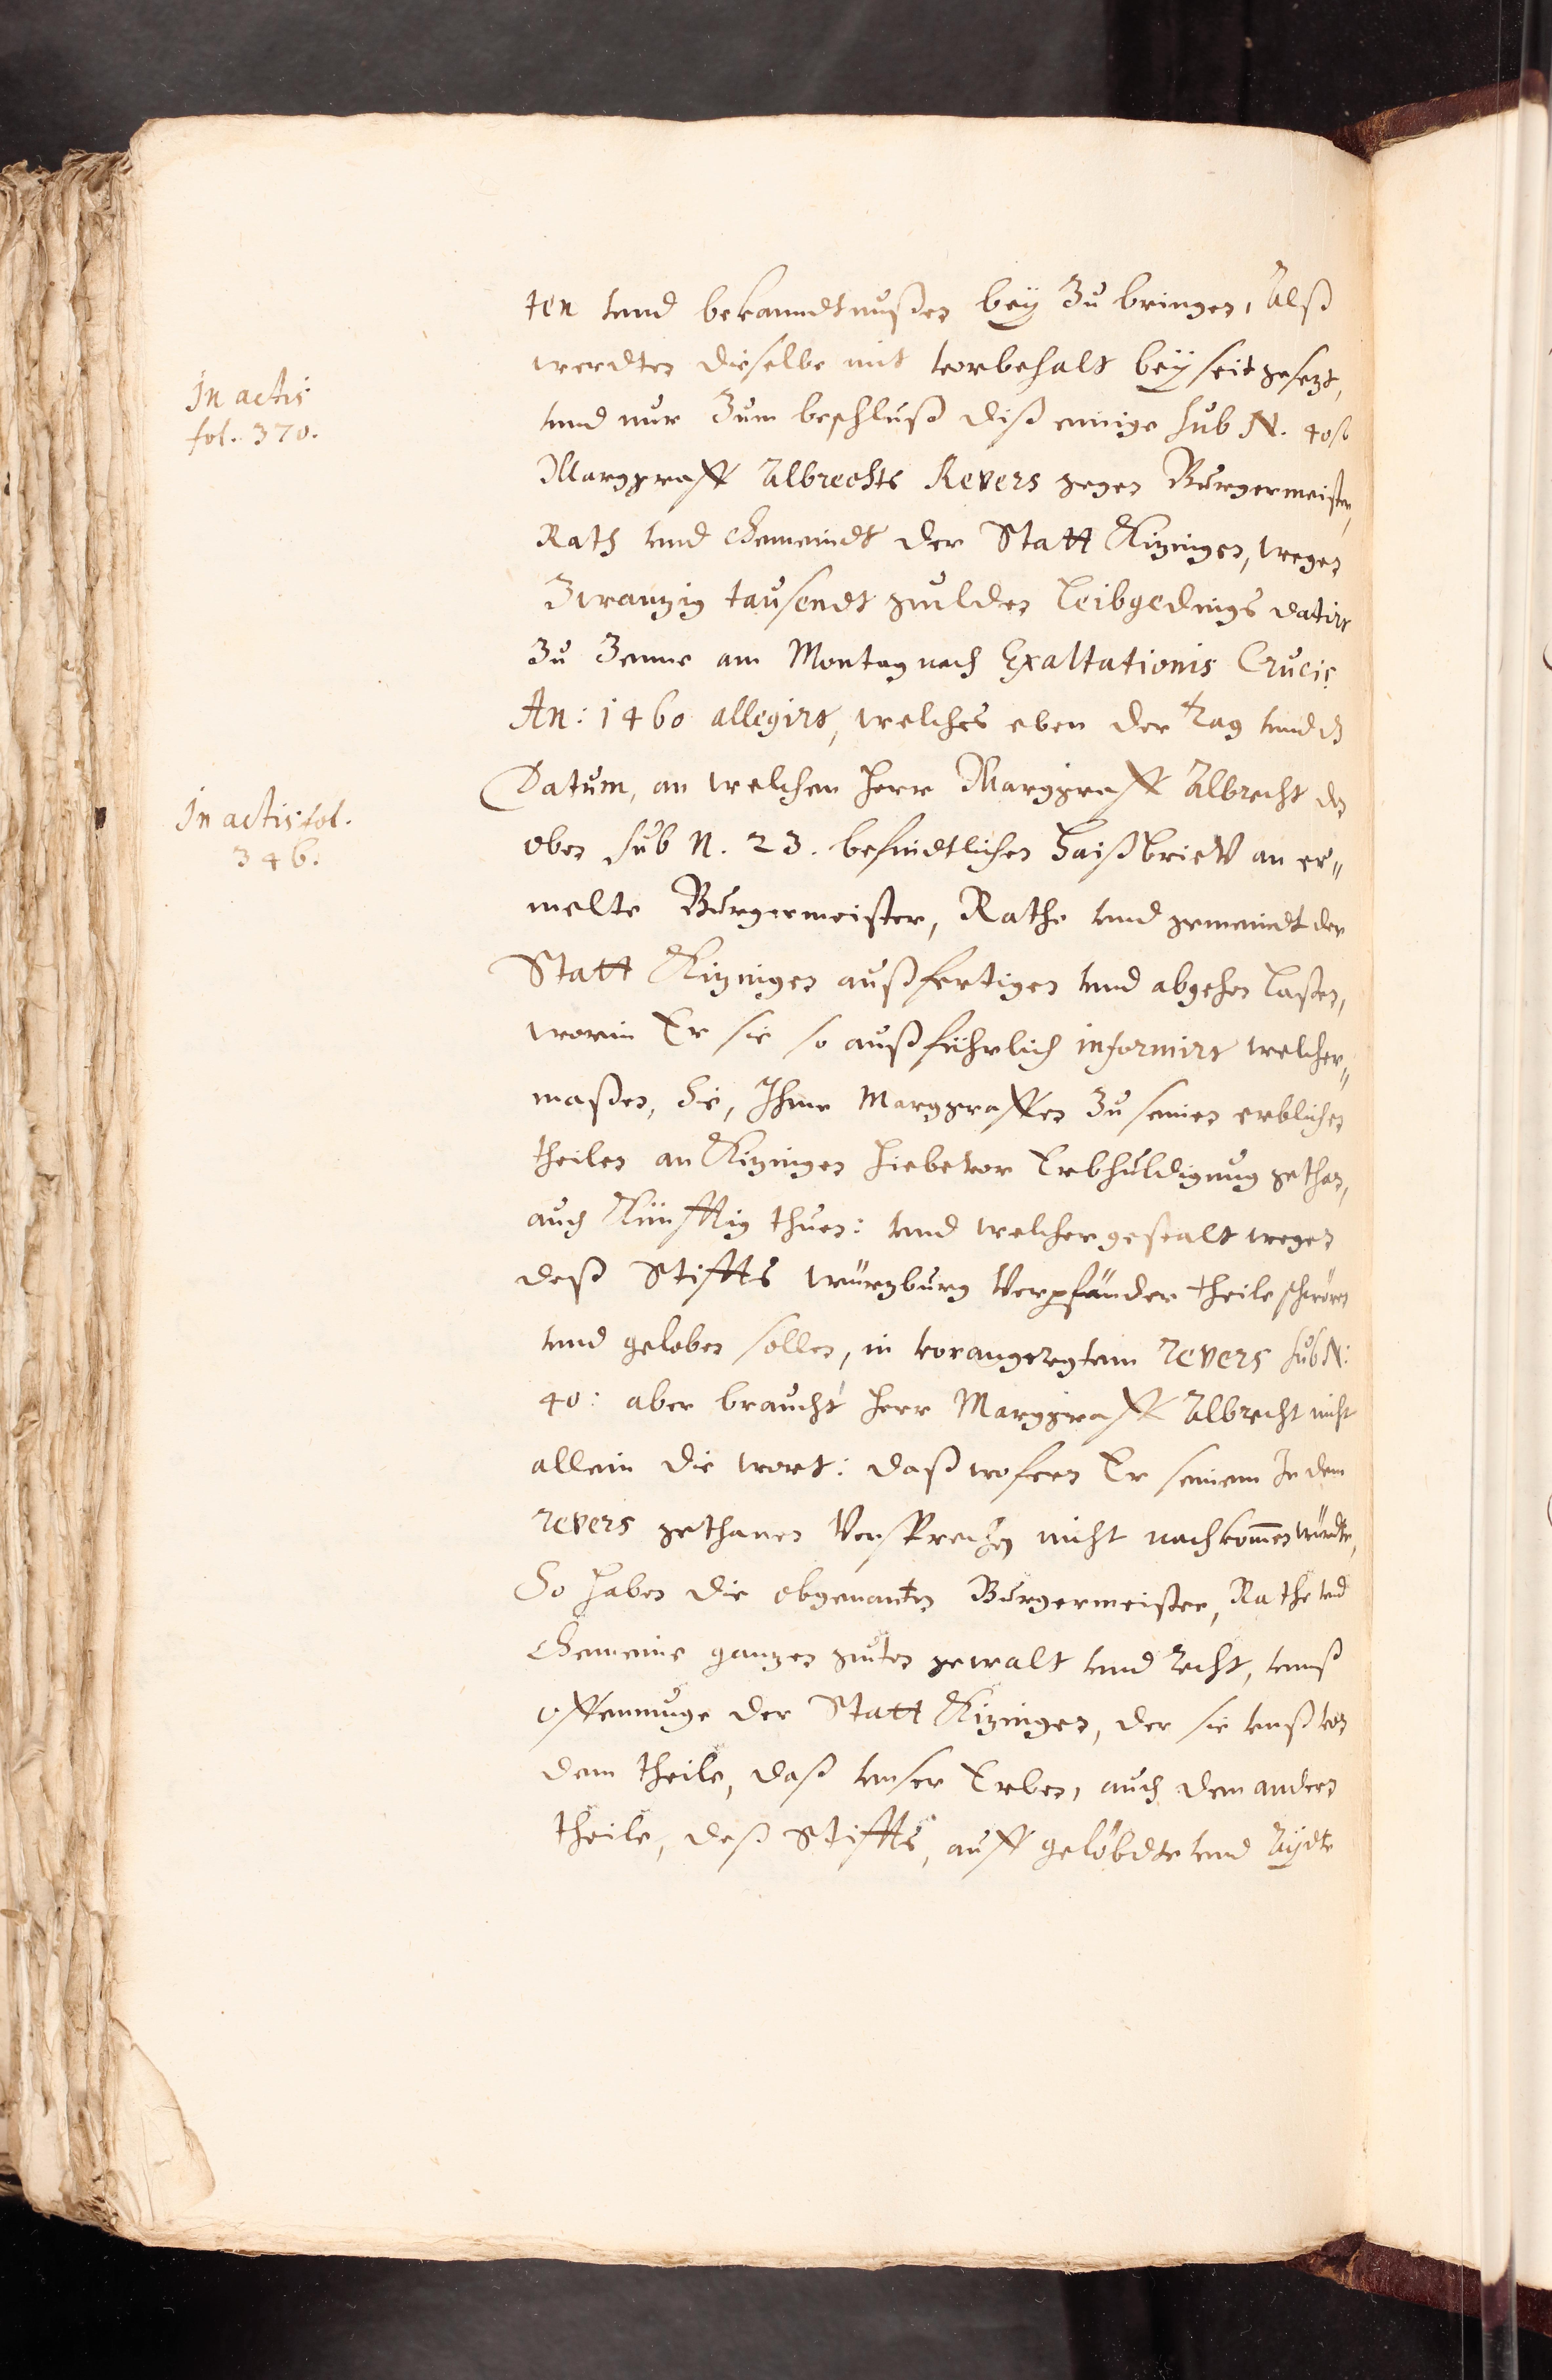 ten vnnd bekanndtnußen bey Zu bringen, Alß
werdten dieselbe mit vorbehalt beyseit gesezt,
In actis
fol. 370.
vnnd nur Zum beschluß diß einige sub N. 40
Marggraff Albrechts Revers gegen Burgermeister,
Rath vnnd Gemeindt der Statt Kizingen, wegen
Zwanzig tausendt gulden Leibgedings datirt
Zu Zenne am Montag nach Exaltationis Crucis
An: 1460 allegirt, welches eben der tag vnnd
Datum, an welchem Herr Marggraff Albrecht den
In actis fol.
346.
oben sub N. 23. befindtlichen Haißbrieff an er„
melte Burgermeister, Rathe vnnd gemeindt der
Statt Kizingen außfertigen vnnd abgehen laßen,
worin Er sie so außführlich informirt welcher„
maßen, Sie, Ihme Marggraffen Zu seinen erblichen
theilen an Kizingen hiebevor Erbhuldigung gethan,
auch Künfftig thuen: vnnd welcher gestalt wegen
deß Stiffts Würzburg Verpfänder theile schwören
vnnd geloben sollen, in vorangeregtem revers sub N:
40: aber braucht Herr Marggraff Albrecht nicht
allein die wort: daß wofern Er seinem In dem
revers gethanen Versprechen nicht nachkommen würdte,
So haben die obgenanten Burgermeister, Rathe vnd
Gemeine ganzen guten gewalt vnnd recht, vnnß
offennunge der Statt Kizingen, der sie vnß von
dem theile, daß vnser Erben, auch dem andern
theile, deß Stiffts, auff gelöbdte vnnd Aydte